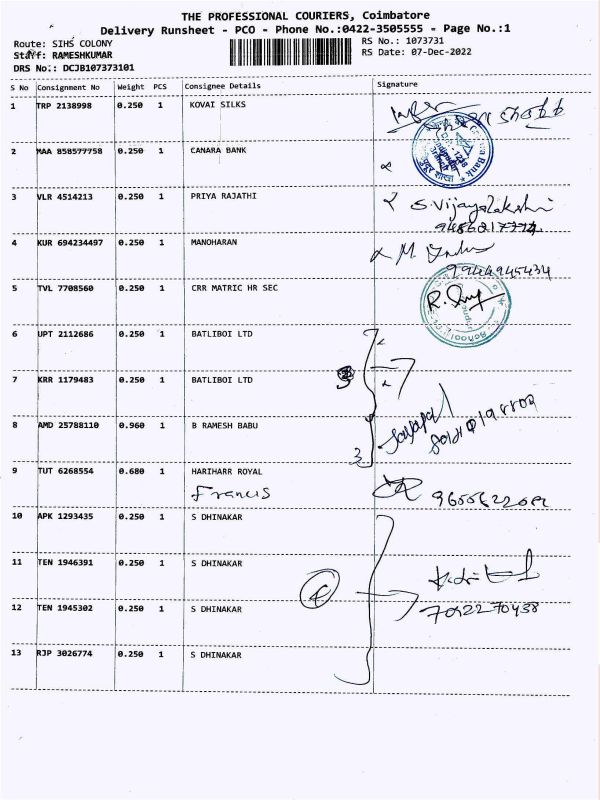 THE PROFESSIONAL COURIERS, Coimbatore
Delivery Runsheet - PCO - Phone No.:0422-3505555 - Page No.:1
Route: SIHS COLONY RS No.: 1073731
Staff: RAMESHKUMAR RS Date: 07-Dec-2022
DRS No.: DCJB107373101
S No Consignment No Weight PCS Consignee Details Signature
1 TRP 2138998 0.250 1 KOVAI SILKS
2 MAA 858577758 0.250 1 CANARA BANK
3 VLR 4514213 0.250 1 PRIYA RAJATHI S. Vijayalakshmi
4 KUR 694234497 0.250 1 MANOHARAN M.
9944945434
5 TVL 7708560 0.250 1 CRR MATRIC HR SEC R.
6 UPT 2112686 0.250 1 BATLIBOI LTD
7 KRR 1179483 0.250 1 BATLIBOI LTD
8 AMD 25788110 0.960 1 B RAMESH BABU
3
9 TUT 6268554 0.680 1 HARIHARR ROYAL
Francis
10 APK 1293435 0.250 1 S DHINAKAR
11 TEN 1946391 0.250 1 S DHINAKAR
12 TEN 1945302 0.250 1 S DHINAKAR
13 RJP 3026774 0.250 1 S DHINAKAR